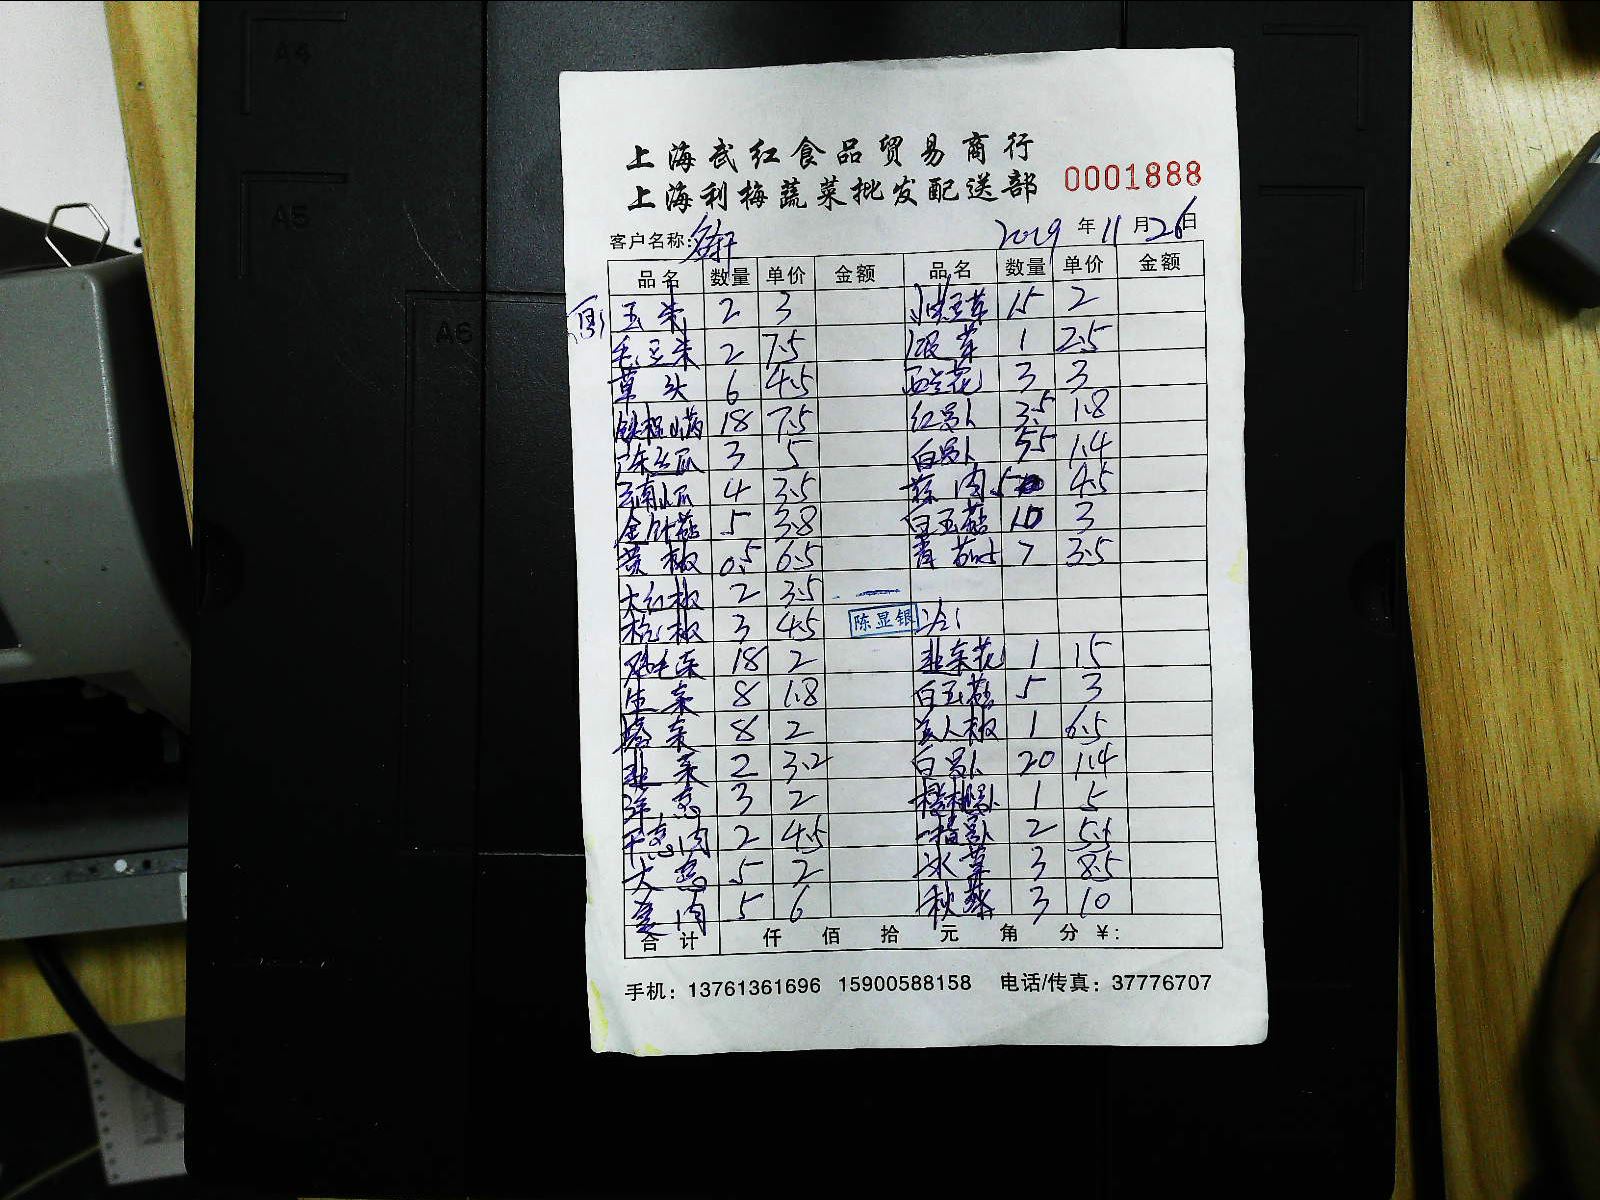 A4
A5
A6
上海武红食品贸易商行
上海利梅蔬菜批发配送部
0001888
客户名称:
2019 年 11 月 26 日
品名 数量 单价 金额 品名 数量 单价 金额
玉米 2 3 15 2
毛豆米 2 7.5 银芽 1 2.5
草头 6 4.5 西兰花 3 3
铁棍山药 18 7.5 红萝卜 3.5 1.8
5 白萝卜 55 1.4
云南小瓜 4 3.5 蒜肉 5 4.5
金针菇 5 3.8 白玉菇 10 3
黄椒 0.5 6.5 青茄 7 3.5
大红椒 2 3.5
杭椒 3 4.5 陈显银
鸡毛菜 18 2 韭菜花 1 15
生菜 8 1.8 白玉菇 5 3
塔菜 8 2 美人椒 1 6.5
韭菜 2 3.2 白萝卜 20 1.4
洋葱 3 2 樱桃萝卜 1 5
干葱肉 2 4.5 2 5.5
大葱 5 2 冰草 3 8.5
姜肉 5 6 秋葵 3 10
合计 仟 佰 拾 元 角 分 ¥:
手机：13761361696 15900588158 电话/传真：37776707